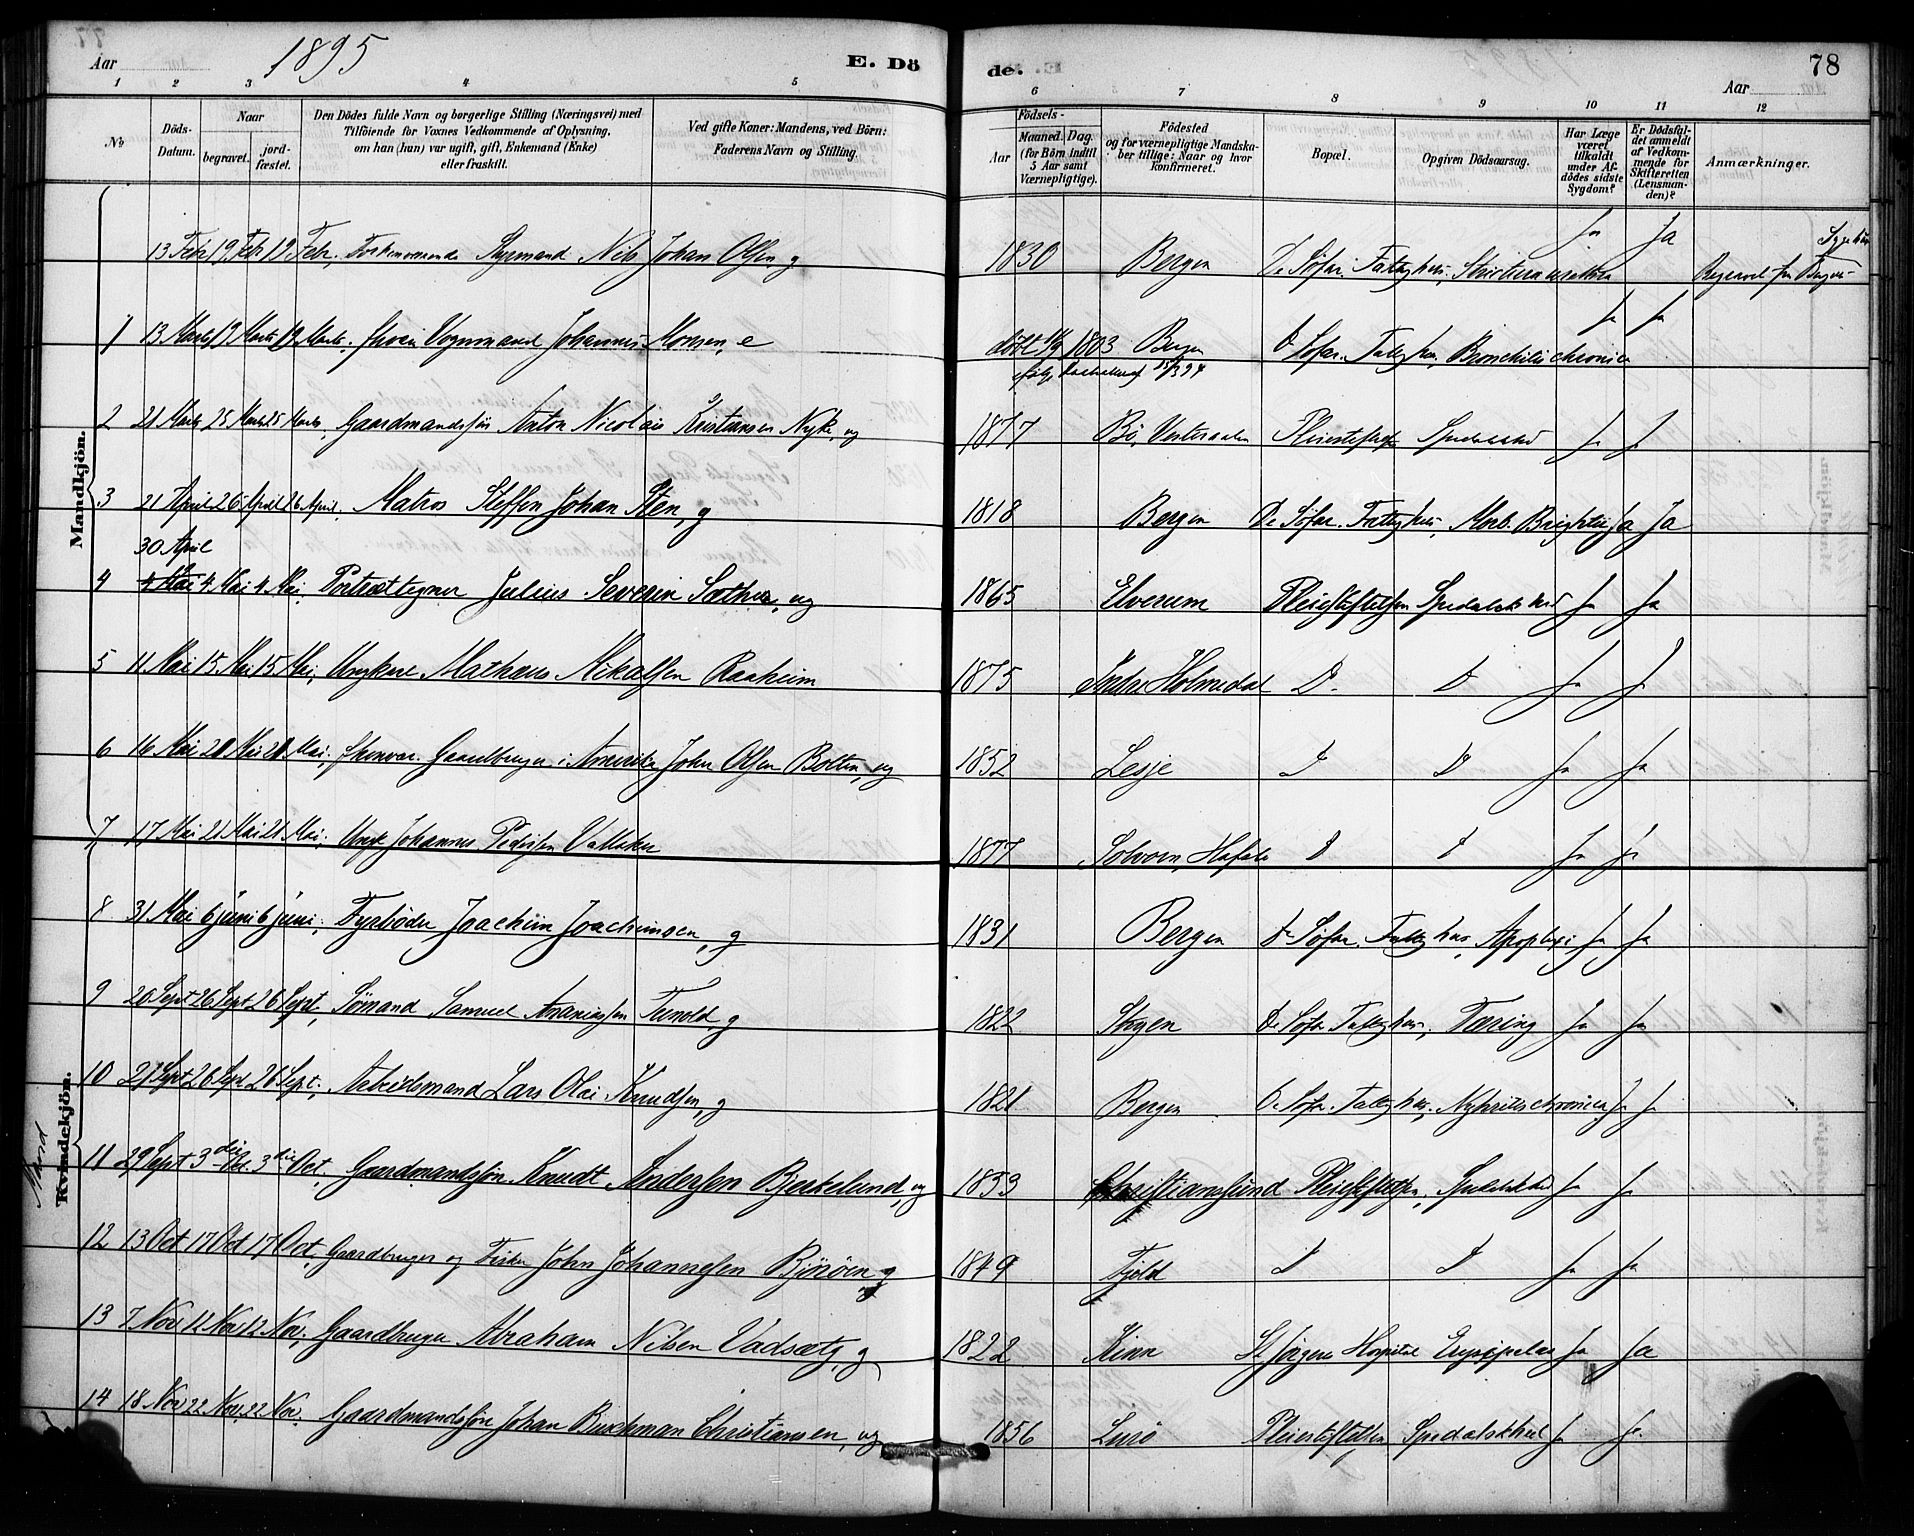 Aar 1895 E. Dö
de. 78
Aar
1 2 3 4 5
6 7 8 9 10 11 12
No
Döds-Datum.
Naar
begravet.
jordfæstet.
Den Dödes fulde Navn og borgerlige Stilling (Næringsvei) med
Tilföiende for Voxnes Vedkommende af Oplysning,
om han (hun) var ugift, gift, Enkemand (Enke)
eller fraskilt.
Ved gifte Koner: Mandens, ved Börn:
Faderens Navn og Stilling.
Födsels-
Aar
Maaned. Dag.
(for Börn indtil
5 Aar samt
Værnepligtige).
Födested
og for værnepligtige Mandskaber tillige: Naar og hvor
konfirmeret.
Bopæl.
Opgiven Dödsaarsag.
Har Læge
været
tilkaldt
under Afdödes sidste
Sygdom?
Er Dödsfaldet anmeldt
af Vedkommende for
Skifteretten
(Lensmanden)?
Anmærkninger.
Mandkjön.
Kvindekjön.
Mand
13 Febr 19 Febr 19 Febr. Styrmand Nils Johan Olsen, g 1830 Bergen De Söfar. Fattighus, Ja Ja
1 13 Marts 19 Marts 19 Marts. Vognmand Johannes Monsen, e födt 1803 Bergen D Söfar. Fattighus, Bronchitis chronica Ja Ja
2 21 Marts 25 Marts 25 Marts, Gaardmandssön Anton Nicolai Kristiansen Nyke, ug 1877 Bö, Vesteraalen Pleiestiftelsen Spedalskhed Ja Ja
3 21 April 26 April 26 April, Matros Steffen Johan Sten, g 1818 Bergen De Söfar. Fattighus, Morb. Brightii Ja Ja
30 April
4 4 Mai 4 Mai 4 Mai, Portrættegner Julius Severin Sether, ug 1865 Elverum Pleiestiftelsen Spedalskhed Ja Ja
5 11 Mai 15 Mai 15 Mai, Ungkarl Mathæus Mikalsen Raaheim 1875 Indre Holmedal D. D Ja Ja
6 16 Mai 20 Mai 20 Mai, Gaardbruger i Amerika John Olsen Bolten, ug 1852 Lesje D D Ja Ja
7 17 Mai 21 Mai 21 Mai, Ungk Johannes Pedersen Vallaker 1877 Solvorn, Hafslo D D Ja Ja
8 31 Mai 6 juni 6 juni, Fyrböder Joachim Joachimsen, g 1831 Bergen De Söfar. Fattighus, Apoplexi Ja Ja
9 20 Sept 26 Sept 26 Sept, Sömand Samuel Ananiassen Arnold, g 1822 De Söfar Fattighus, Tæring Ja Ja
10 21 Sept 26 Sept 26 Sept, Arbeidsmand Lars Olai Knudsen, g 1821 Bergen D Söfar. Fattighus, chronica Ja Ja
11 29 Sept 3die Oct 3die Oct, Gaardmandssön Knudt Andersen Bjerkelund, ug 1853 Christianssund Pleiestiftelsen, Spedalskhed Ja Ja
12 13 Oct 17 Oct 17 Oct, Gaardbruger og Fisker John Johannesen Björöen, g 1849 Fjeld D D Ja Ja
13 7 Nov 12 Nov 12 Nov, Gaardbruger Abraham Nilsen Vadsæt, g 1822 Kinn St Jörgens Hospital Erysipelas Ja Ja
14 18 Nov 22 Nov 22 Nov. Gaardmandssön Johan Buchman Christiansen, ug 1856 Lurö Pleiestiftelsen Spedalskhed Ja Ja